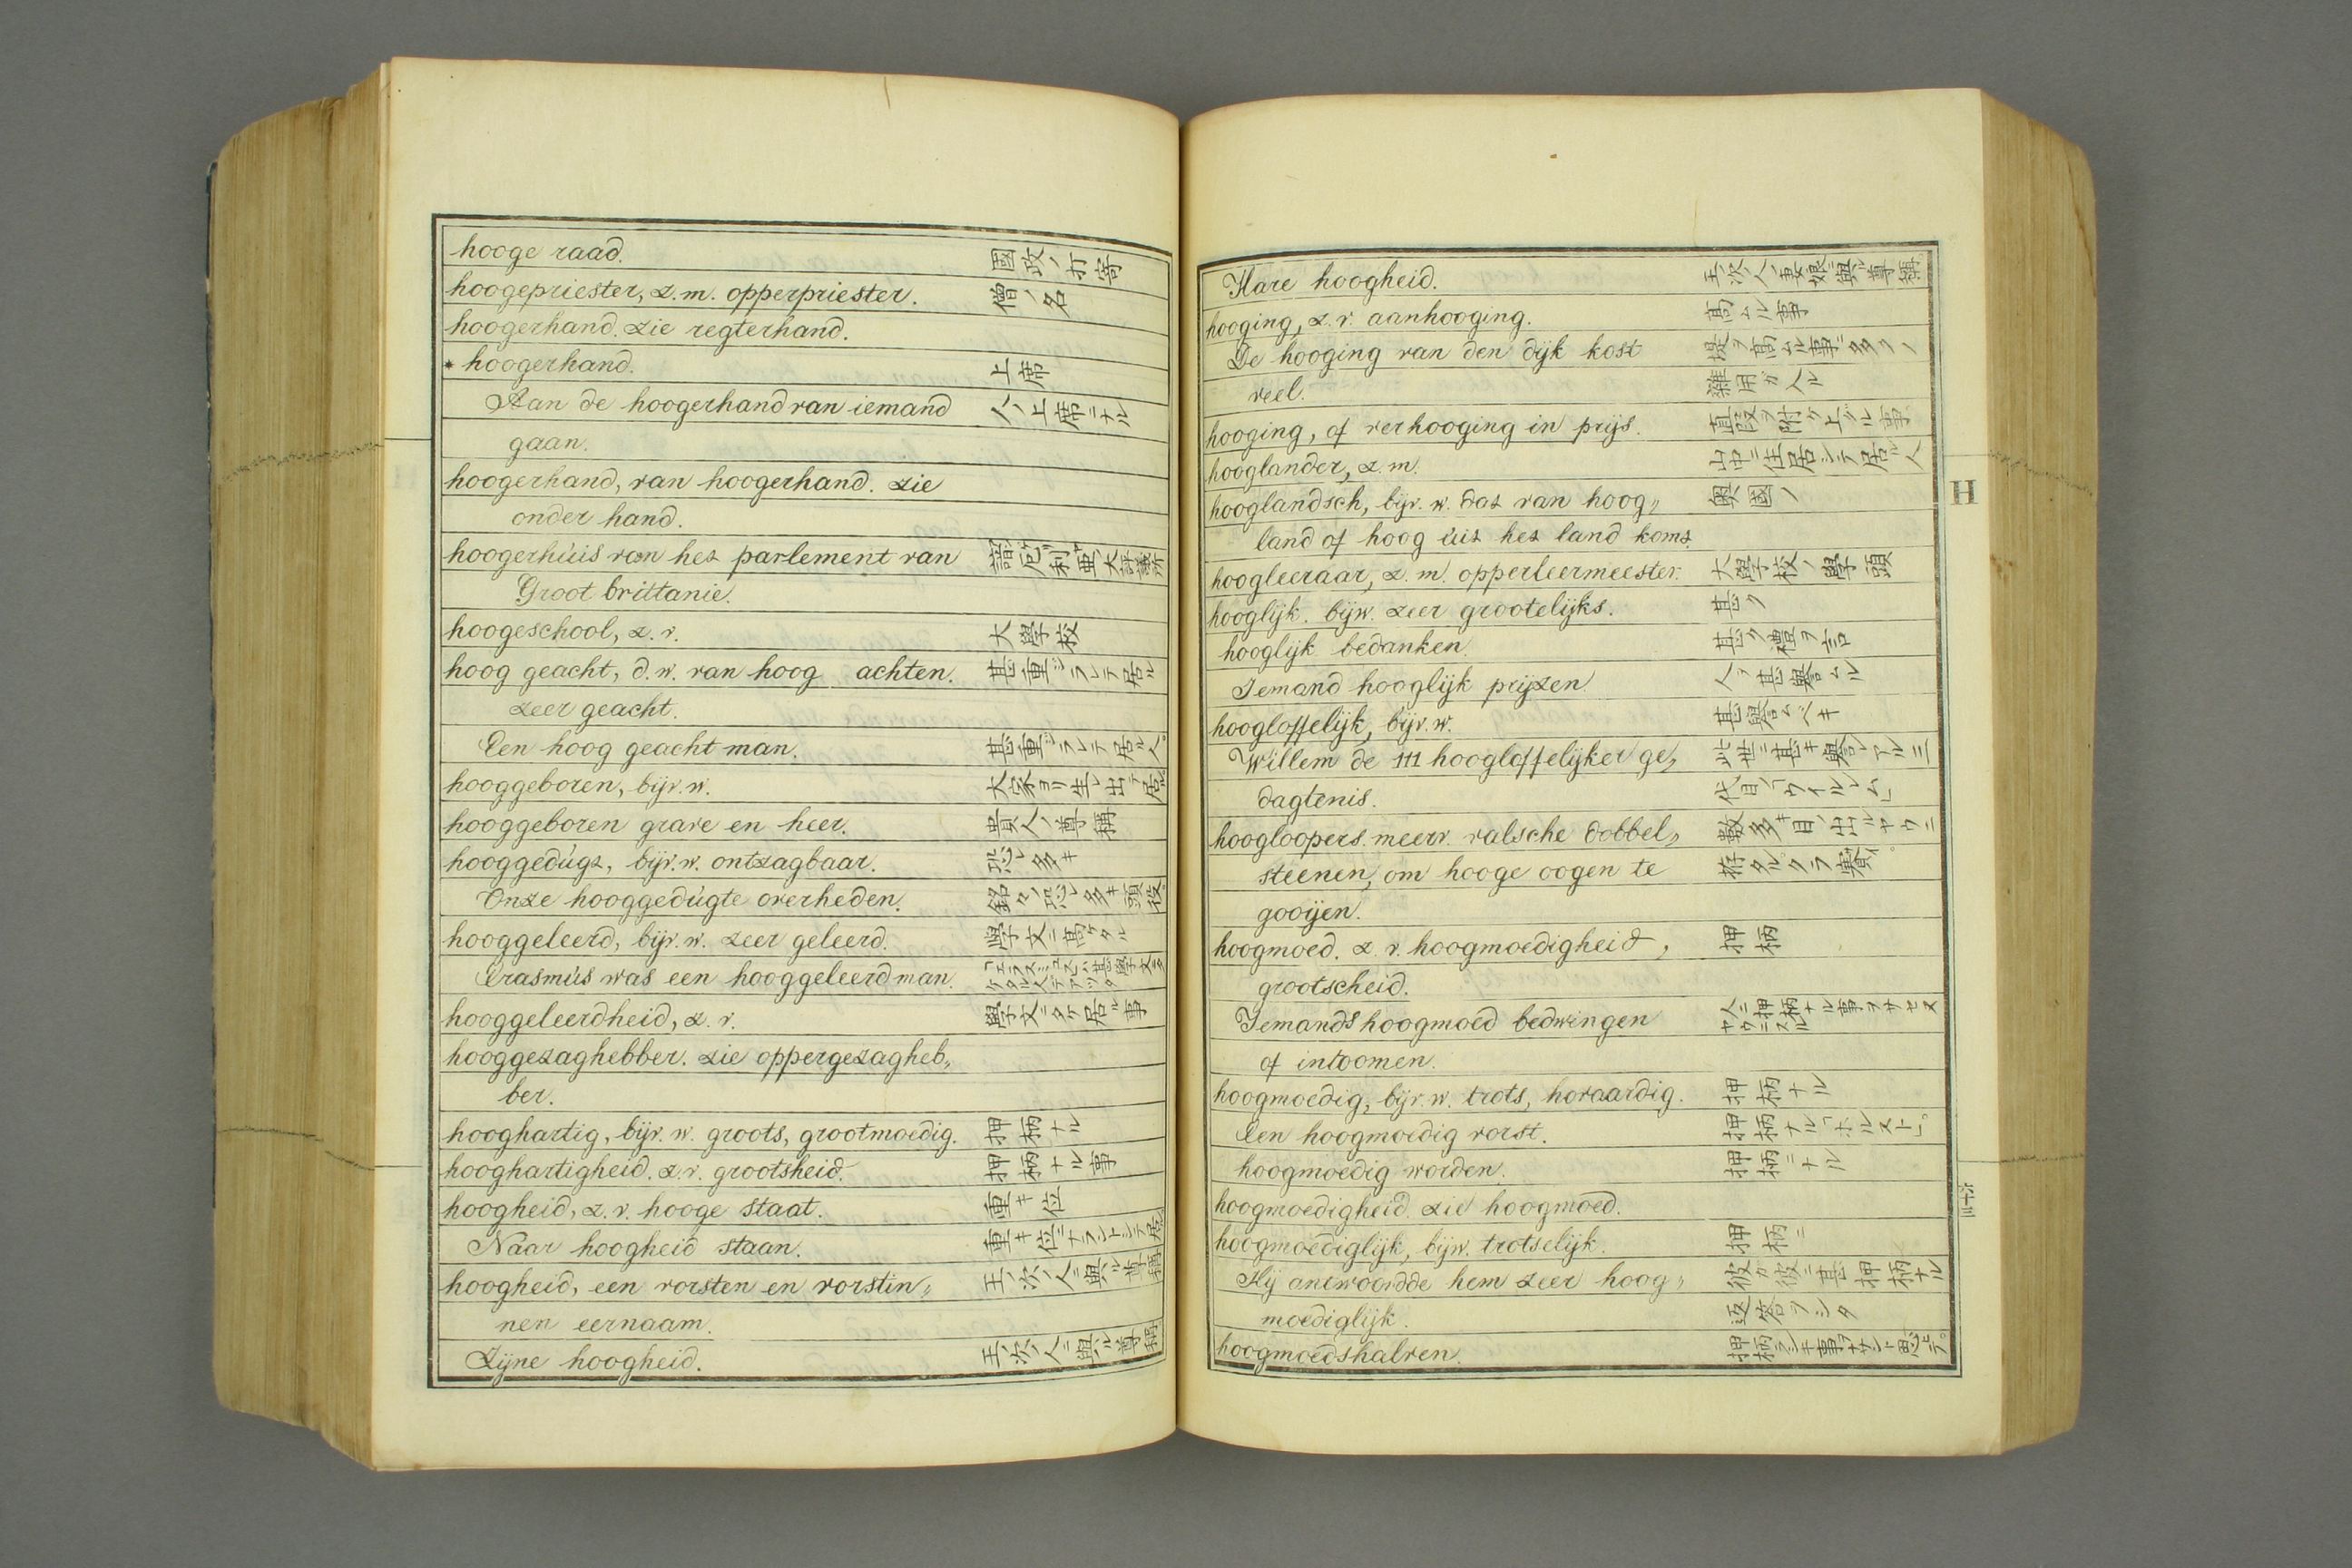 hooge raad. 國政ノ打寄
hoogepriester, z.m. opperpriester. 僧ノ名
hoogerhand. zie regterhand.
* hoogerhand. 上席
Aan de hoogerhand van iemand 人ノ上席ニナル
gaan.
hoogerhand, van hoogerhand. zie
onder hand.
hoogerhùis van het parlement van 諳厄利亜ノ大評議所
Groot brittanie.
hoogeschool, z.v. 大學校
hoog geacht, d.w. van hoog achten. 甚重ジラレテ居ル
zeer geacht.
Een hoog geacht man. 甚重ジラレテ居ル人。
hooggeboren, bijv.w. 大家ヨリ生レ出テ居ル
hooggeboren grave en heer. 貴人ノ尊稱
hooggedùgt, bijv.w. ontzagbaar. 恐レ多キ
Onze hooggedùgte overheden. 銘々ノ恐レ多キ頭役。
hooggeleerd, bijv.w. zeer geleerd. 學文ニ髙ケタル
Erasmùs was een hooggeleerd man. 「エラスミュス」ハ甚學文ニタ
ケタル人デアツタ
hooggeleerdheid, z.v. 學文ニタケ居ル事
hooggezaghebber. zie oppergezagheb„
ber.
hooghartig, bijv.w. groots, grootmoedig. 押柄ナル
hooghartigheid. z.v. grootsheid. 押柄ナル事
hoogheid, z.v. hooge staat. 重キ位
Naar hoogheid staan. 重キ位ニナラントシテ居ル
hoogheid, een vorsten en vorstin„ 王ノ次ノ人ニ與ル尊稱
nen eernaam.
Zijne hoogheid. 王ノ次ノ人ニ與ル尊稱
Hare hoogheid. 王ノ次ノ人ノ妻娘ニ與ル尊稱
hooging, z.v. aanhooging. 髙ムル事
De hooging van den dijk kost 堤ヲ髙ムル事ニ多クノ
veel. 雜用ガ入ル
hooging, of verhooging in prijs. 直段ヲ附ケ上グル事
hooglander, z.m. 山中ニ住居シテ居ル人
hooglandsch, bijv.w. dat van hoog„ 奥國ノ
land of hoog ùit het land komt.
hoogleeraar, z.m. opperleermeester. 大學校ノ學頭
hooglijk. bijw. zeer grootelijks. 甚ク
hooglijk bedanken. 甚ク禮ヲ言
Iemand hooglijk prijzen. 人ヲ甚譽ムル
hoogloffelijk, bijv.w. 甚譽ムベキ
Willem de III hoogloffelijker ge„ 此世ニ甚キ譽レアル三
dagtenis. 代目ノ「ウイルレム」
hoogloopers. meerv. valsche dobbel„ 數多キ目ノ出ルヤウニ
steenen, om hooge oogen te
gooijen.
hoogmoed. z.v. hoogmoedigheid, 押柄
grootscheid.
Iemands hoogmoed bedwingen 人ニ押柄ナル事ヲサセヌ
ヤウニスル
of intoomen.
hoogmoedig, bijv.w. trots, hovaardig. 押柄ナル
Een hoogmoedig vorst. 押柄ナル「ホルスト」。
hoogmoedig worden. 押柄ニナル
hoogmoedigheid. zie hoogmoed.
hoogmoediglijk, bijw. trotselijk. 押柄ニ
Hij antwoordde hem zeer hoog„ 彼ガ彼ニ甚押柄ナル
moediglijk. 返答ヲシタ
hoogmoedshalven.
H